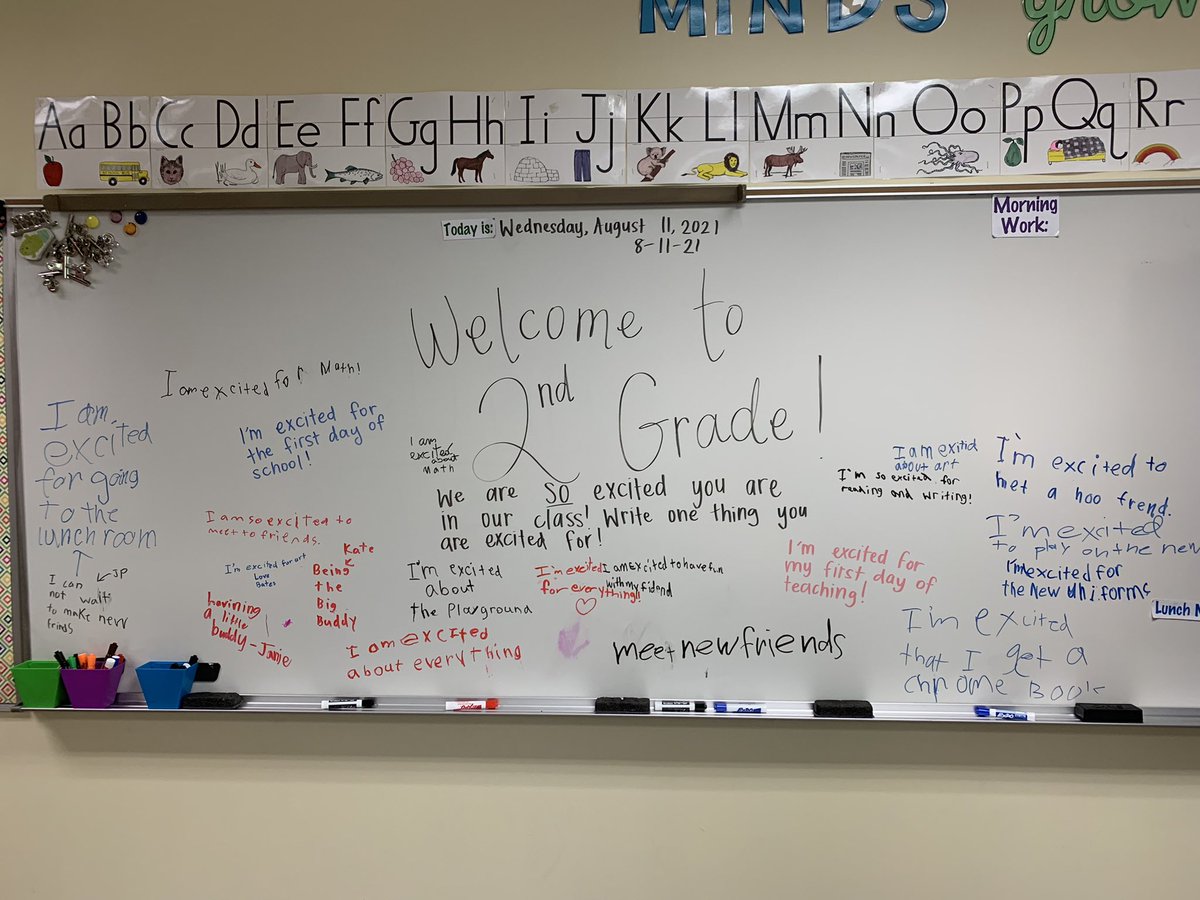 MINDS grow
Aa Bb Cc Dd Ee Ff Gg Hh Ii Jj Kk Ll Mm Nn Oo Pp Qq Rr
Today is: Wednesday, August 11, 2021
8-11-21
Morning
Work:
Welcome to
2nd Grade!
We are SO excited you are
in our class! Write one thing you
are excited for!
I am excited for Math!
I am
excited
for going
to the
lunch room
I'm excited for
the first day of
school!
I am
excited
about
math
I am so excited to
meet to friends.
I'm excited for art
Love
Bates
Kate
Being
the
Big
Buddy
JP
I can
not wait
to make new
frinds
Havining
a little
buddy-Janie
I'm excited
about
the Playground
I'm excited
for everything!!
I am excited to have fun
with my fidend
I am excited
about everything
meet new friends
I'm excited for
my first day of
teaching!
I am exitid
about art
I'm so excited for
reading and writing!
I'm excited to
met a hoo frend.
I'm excited
to play on the new
I'm excited for
the new uniforms
I'm excited
that I get a
chrome Book
Lunch